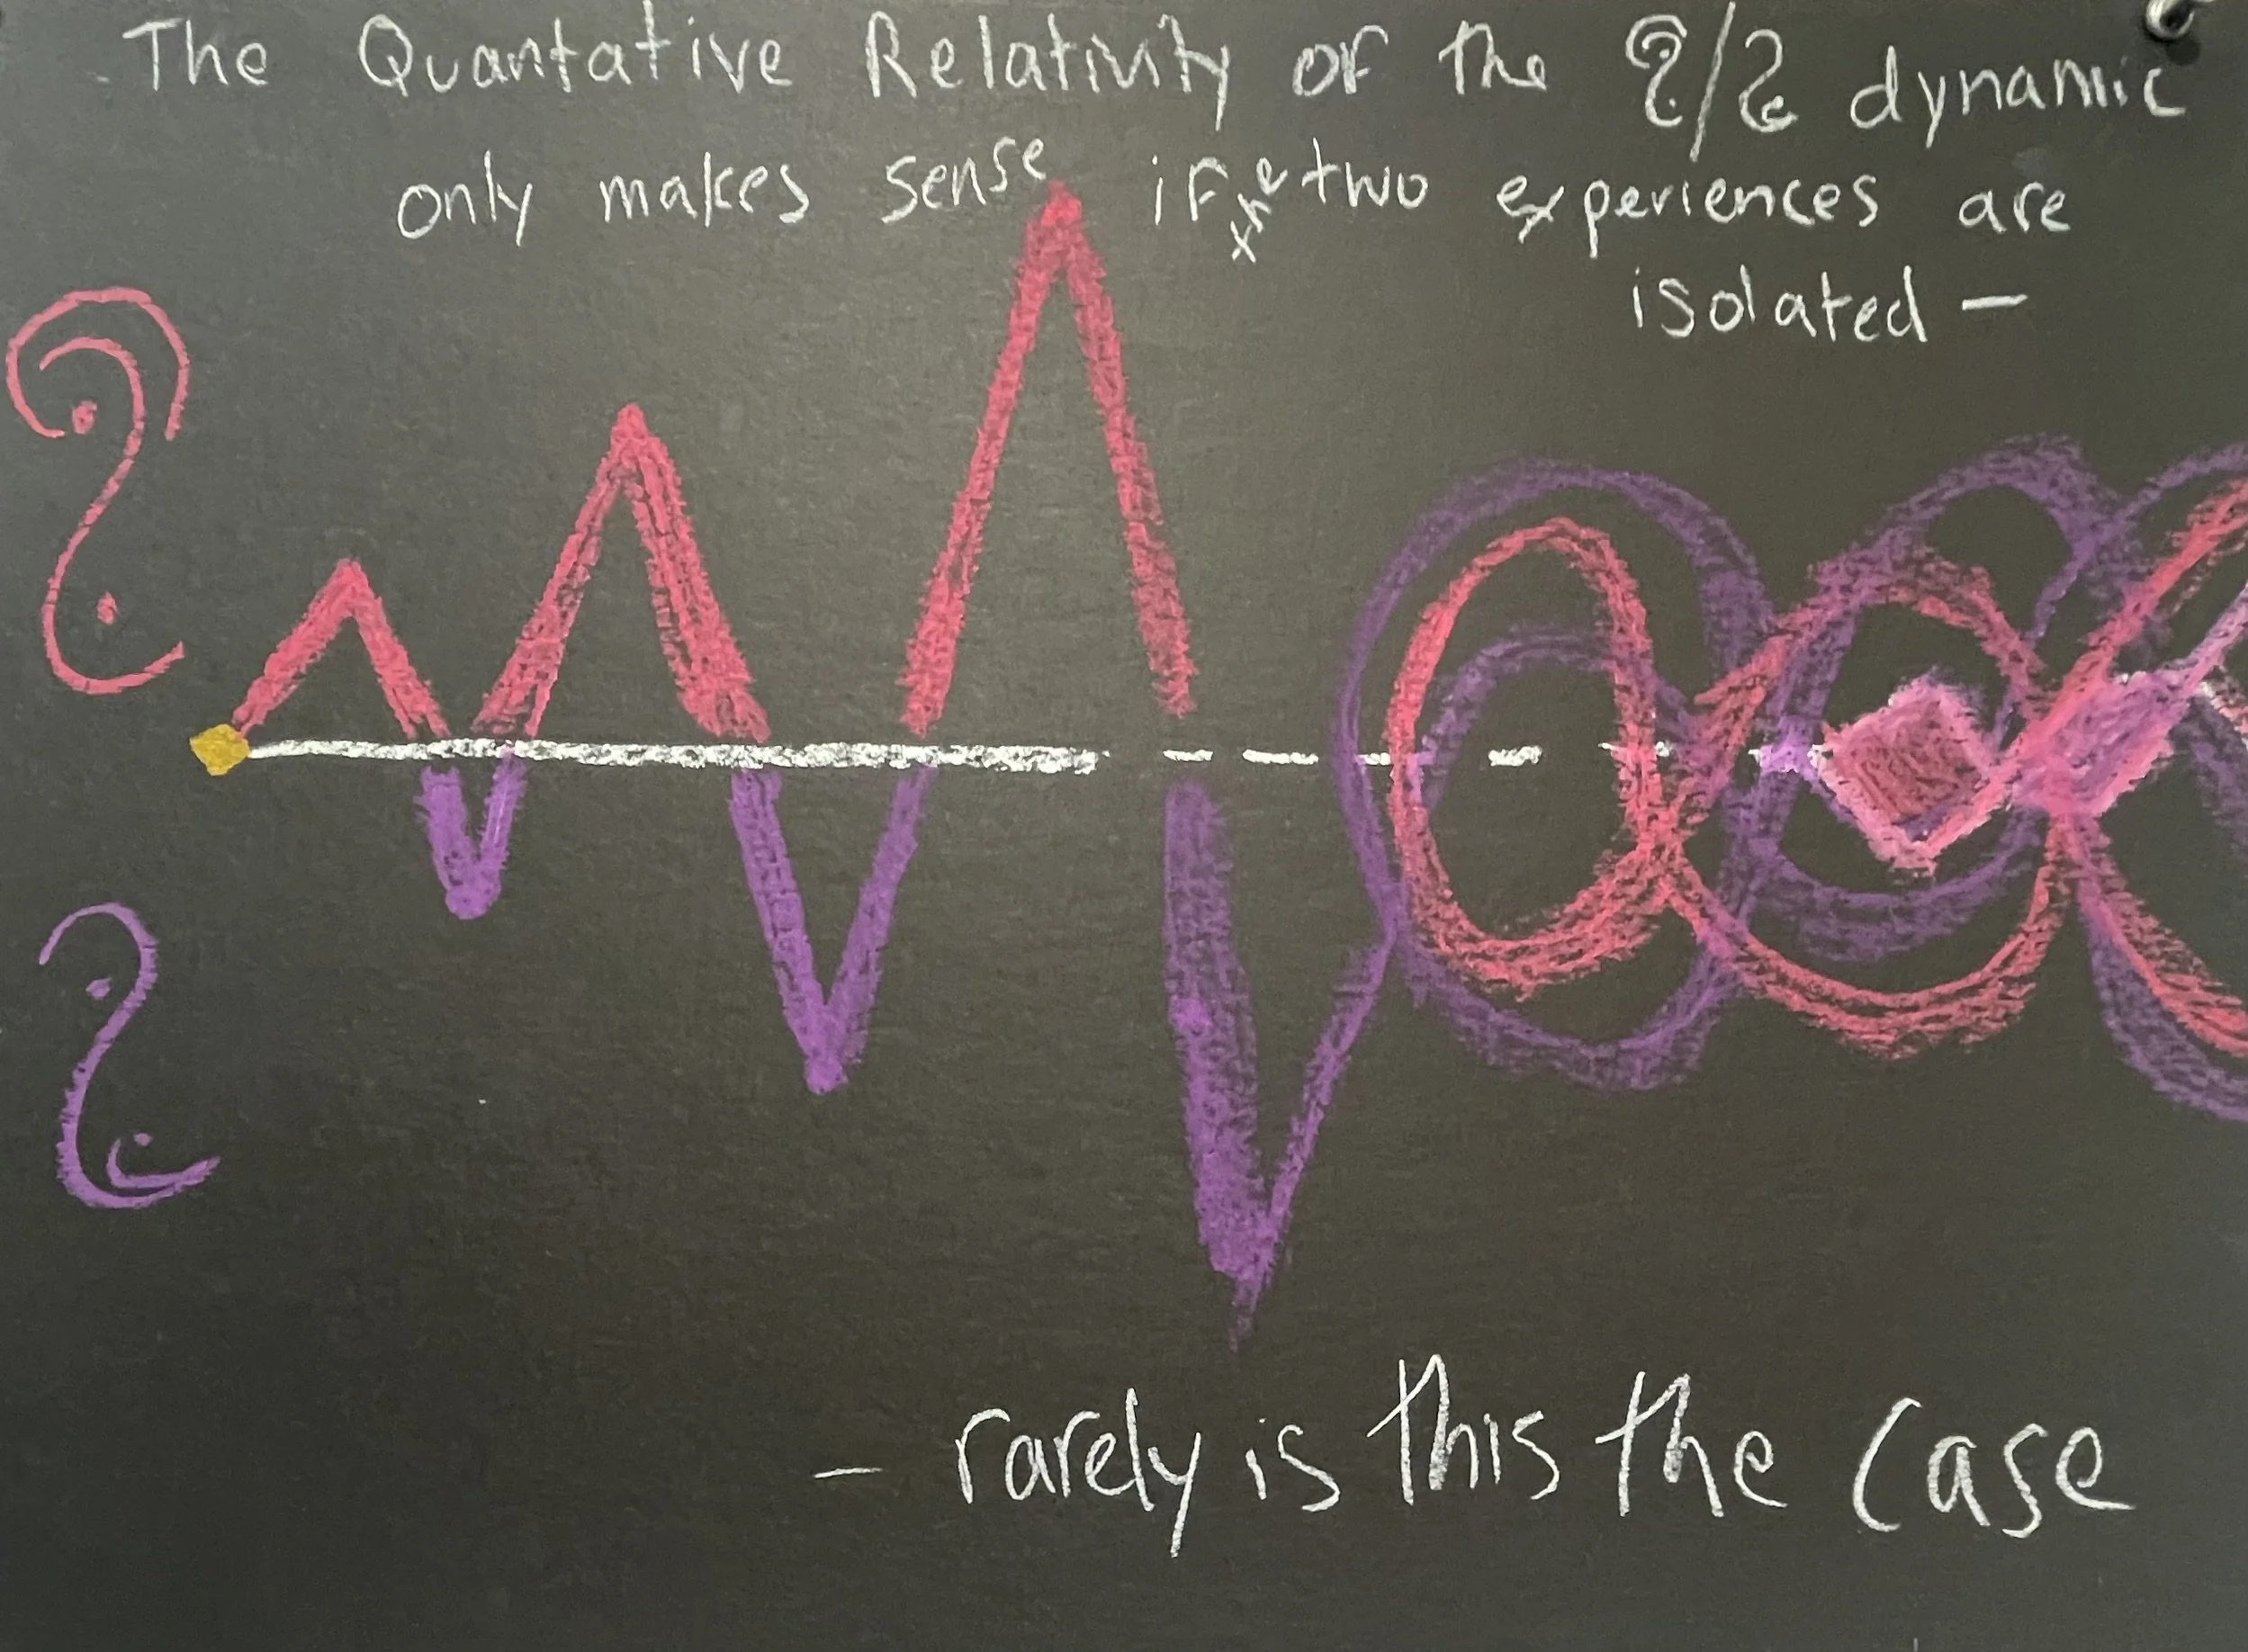 The Quantative Relativity of the / dynamic
only makes sense if the two experiences are
isolated —
— rarely is this the case